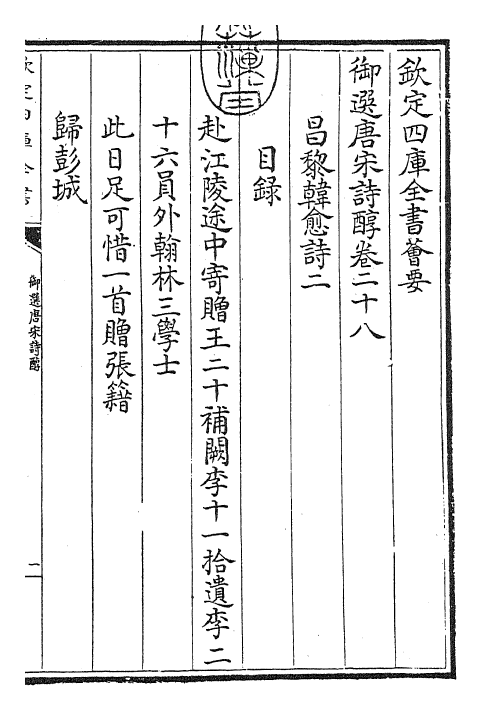 欽定四庫全書薈要
御選唐宋詩醇卷二十八
昌黎韓愈詩二
目録
赴江陵途中寄贈王二十補闕李十一拾遺李二
十六員外翰林三學士
此日足可惜一首贈張籍
歸彭城
御選唐宋詩醇